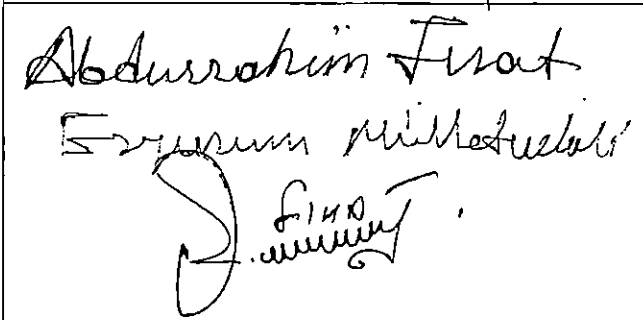 Abdurrahim Fırat
Erzurum Milletvekili